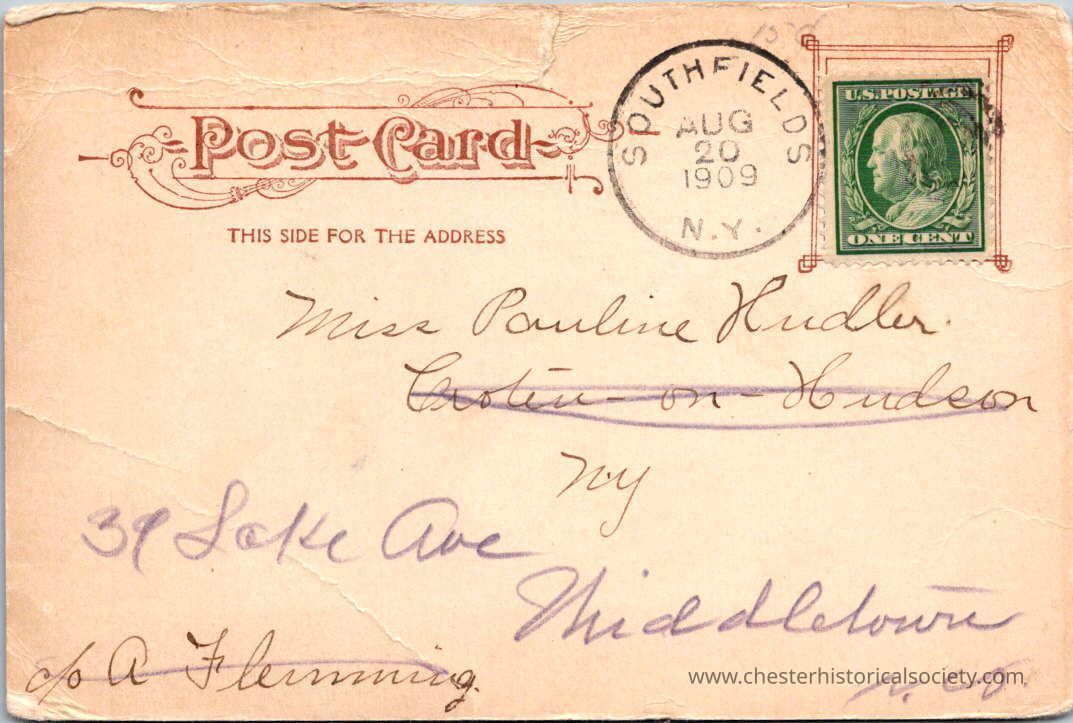 Post Card
THIS SIDE FOR THE ADDRESS
SOUTHFIELDS
AUG
20
1909
N.Y.
U.S. POSTAGE
ONE CENT
Miss Pauline Hudler.
Croton-on-Hudson
NY
39 Lake Ave
Middletown
c/o A Flemming.
www.chesterhistoricalsociety.com